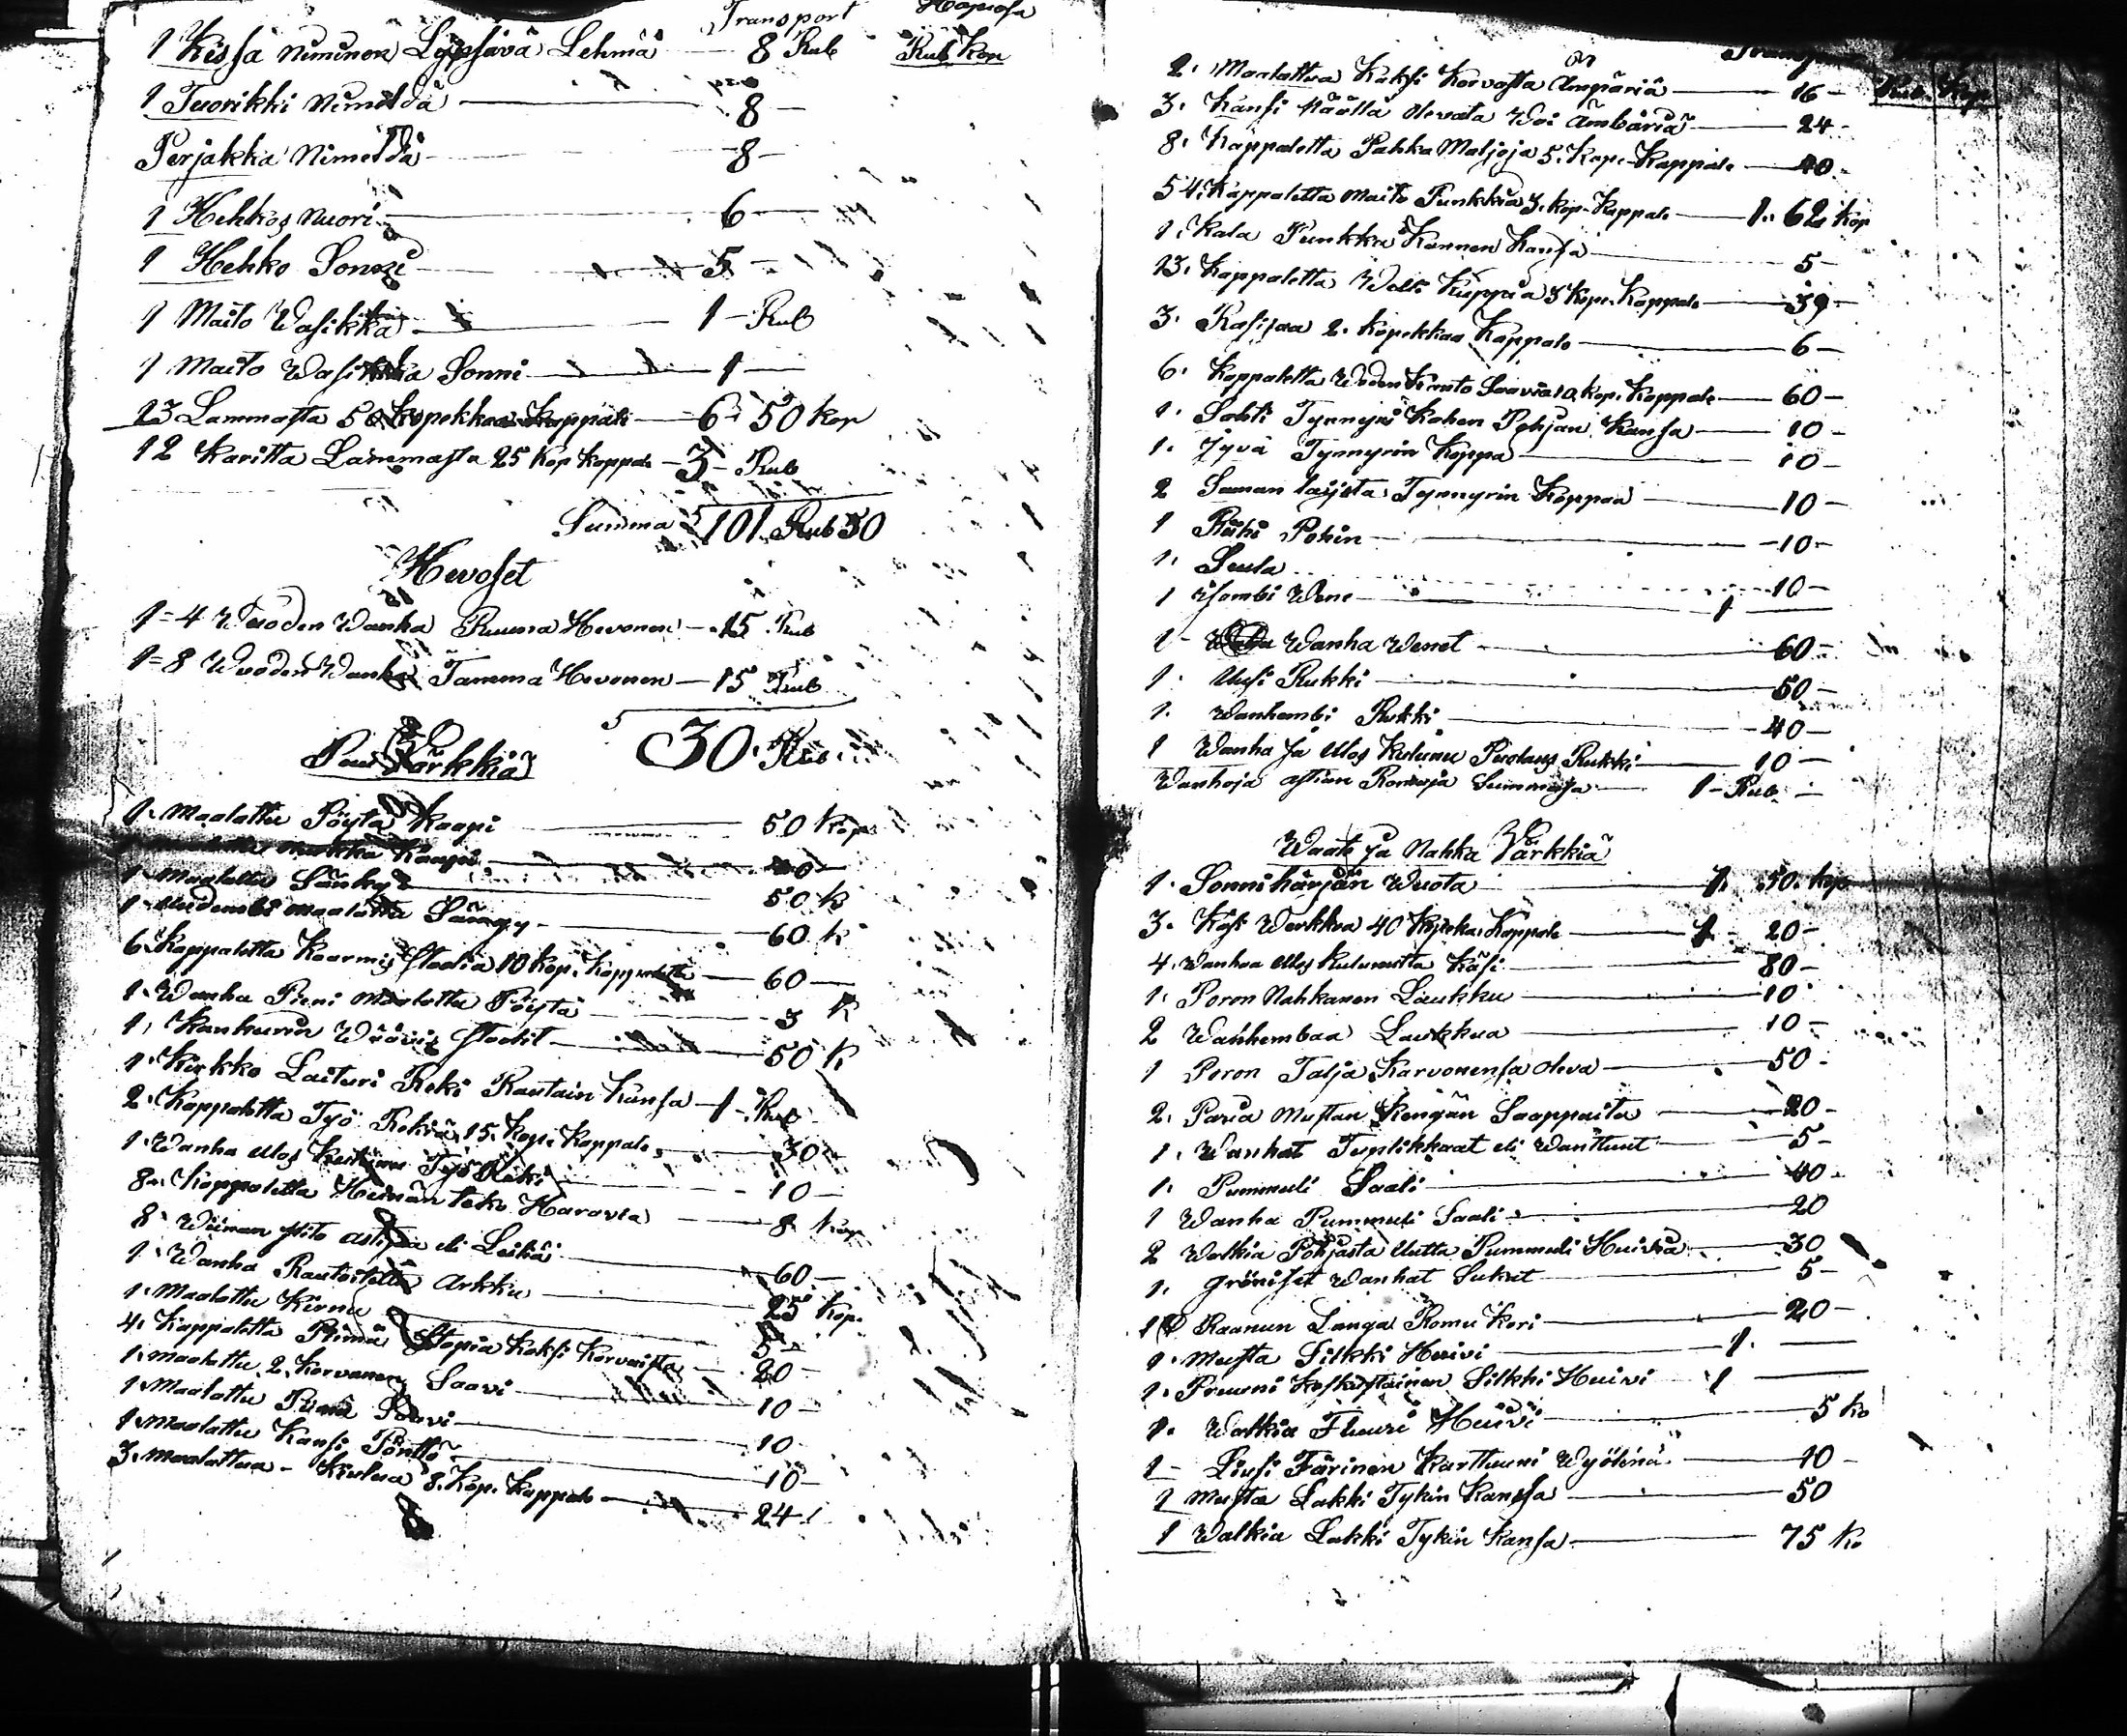 Transport Hopiosa
1 Kissa niminen Lypsävä Lehmä 8 Rub Rub Kop
1 Tuorikki Nimeldä 8 —
Perjakka Nimeldä 8 —
1 Hehkos nuori 6 —
1 Hehko Sonni 5 —
1 Maito Wasikka 1 — Rub
1 Maito Wasikka Sonni 1 —
13 Lammasta 50 kopekkaa kappale 6 : 50 kop
12 Karitta Lammasta 25 kop kappale 3 — Rub
Summa 101 Rub 50
Hevoset
1 = 4 Wuoden Wanha Ruuna Hevonen 15 Rub
1 = 8 Wuoden Wanha Tamma Hevonen 15 Rub
30. Rub.
Puu Värkkiä
1. Maalattu Pöytä Kaapi 50 kop
Kaapi 40 —
1. Maalattu Sänky 50 k
1. Uudembi maalattu Sängy 60 k
6. Kappaletta Kaarmis Stoolia 10 kop. kappaletta 60 —
1. Wanha Pieni maalattu Pöytä 3 k
1. Kankurin Stoolit 50 k
1. Kirkko Laituri Reki Rautain Kansa 1 - Rub
2. Kappaletta Työ Rekiä 15. kop. kappale 30 —
1. Wanha ulos Kulunu Työ Reki 10 —
8. Kappaletta Heinän teko Haravia 8 kop
8. Wiinan pito astiaa eli Leiliä 60 —
1. Wanha Rautoitettu Arkku 25 kop.
1. Maalattu Kirnu 5 —
4. Kappaletta Piimä Stopia Kaksi Korvaista 20 —
1. maalattu 2. Korvanen Saavi 10 —
1. Maalattu Piimä Saavi 10
1. Maalattu Kansi Pönttö 10 —
3. maalattua — Kiulua 8. Kop. Kappale 24
2. Maalattua Kaksi Korvasta Ämpäriä 16 — Rub. Kop.
3. Kansi Päällä olevata Woi Ämbäriä 24 —
8. Kappaletta Pahka Maljoja 5. Kop. Kappale 40 —
54. Kappaletta maito Punkkia 3. kop. Kappale 1. 62 kop
1. Kala Punkka Kannen Kansa 5 —
13. Kappaletta Kuppia 3 kop. Kappale 39 —
3. Rasijaa 2. kopekkaa Kappale 6 —
6. Kappaletta Weden Kanto Saavia 10. kop. Kappale 60 —
1. Sahti Tynnyri Kahen Pohjan Kansa 10 —
1. Jyvä Tynnyrin Koppa 10 —
2 Saman laijsta Tynnyrin Koppaa 10 —
1 Riihi Pohin 10 —
1. Seula 10 —
1 Isombi Wene 1 —
1 - Wanha Wenet 60 —
1. Uusi Rukki 50 —
1. Wanhembi Rukki 40 —
1 Wanha ja ulos kulunu Puolaus Rukki 10 —
Wanhoja astian Romuja Summassa 1 - Rub. —
Waate ja Nahka Värkkiä
1. Sonni härjän Wuota 1. 50. kop
3. Käsi Werkkoa 40 Kopeka Kappale 1 20 —
4. Wanhaa ulos kulunutta Käsi 80 —
1. Poron Nahkanen Laukku 10
2 Wanhembaa Laukkua 10 —
1 Poron Talja Karvonensa oleva 50 —
2. Paria mustan Kengän Saappaita 20 —
1. Wanhat Tuplikkaat eli Wanttuut 5 —
1. Pummuli Saali 40 —
1 Wanha Pummuli Saali 20
2 Walkia Pohjasta Uutta Pummuli Huivia 30
1. Gröniset Wanhat Sukat 5 —
1 Raanun Langa Romu Kori 20 —
1. Musta Silkki Huivi 1. —
1. Pruuni Silkki Huivi 1 —
1. Walkia Fluuri Huivi 5 ko
1 - Liusi Färinen Karttuuni Wyöliinä 10 —
1 Musta Lakki Tykin Kanssa 50
1 Walkia Lakki Tykin Kansa 75 ko